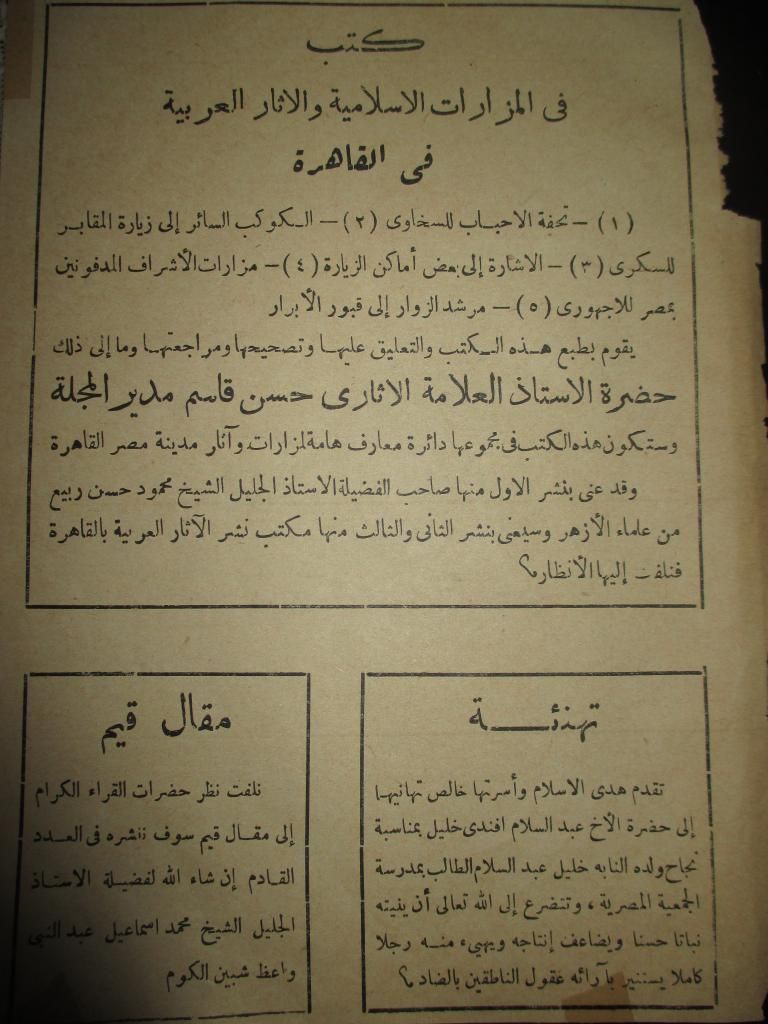 كتب
فى المزارات الاسلامية والاثار العربية
فى القاهرة
(١) – تحفة الاحباب للسخاوى (٢) – الكوكب السائر إلى زيارة المقابر
للسكرى (٣) – الاشارة إلى بعض أماكن الزيارة (٤) – مزارات الأشراف المدفونين
بمصر للاجهورى (٥) – مرشد الزوار إلى قبور الأبرار
يقوم بطبع هذه الكتب والتعليق عليها وتصحيحها ومراجعتها وما إلى ذلك
حضرة الاستاذ العلامة الاثارى حسن قاسم مدير المجلة
وستكون هذه الكتب فى مجموعها دائرة معارف هامة لمزارات وآثار مدينة مصر القاهرة
وقد عنى بنشر الاول منها صاحب الفضيلة الاستاذ الجليل الشيخ محمود حسن ربيع
من علماء الأزهر وسيعنى بنشر الثانى والثالث منها مكتب نشر الآثار العربية بالقاهرة
فنلفت إليها الأنظار؟
تهنئة
تقدم هدى الاسلام وأسرتها خالص تهانيها
إلى حضرة الأخ عبد السلام افندى خليل بمناسبة
نجاح ولده النابه خليل عبد السلام الطالب بمدرسة
الجمعية المصرية ، وتتضرع إلى الله تعالى أن ينبته
نباتا حسنا ويضاعف إنتاجه ويهيء منه رجلا
كاملا يستنير بآرائه عقول الناطقين بالضاد ؟
مقال قيم
نلفت نظر حضرات القراء الكرام
إلى مقال قيم سوف ننشره فى العدد
القادم إن شاء الله لفضيلة الاستاذ
الجليل الشيخ محمد اسماعيل عبد النبى
واعظ شبين الكوم